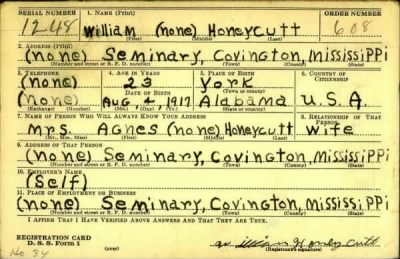 SERIAL NUMBER 1. NAME (Print) ORDER NUMBER
1248 William (none) Honeycutt 608
(First) (Middle) (Last)
2. ADDRESS (Print)
(none) Seminary, Covington, Mississippi
(Number and street or R. F. D. number) (Town) (County) (State)
3. TELEPHONE 4. AGE IN YEARS 5. PLACE OF BIRTH 6. COUNTRY OF CITIZENSHIP
(none) 23 York
DATE OF BIRTH (Town or county)
(none) Aug. 4, 1917 Alabama U.S.A.
(Exchange) (Number) (Mo.) (Day) (Yr.) (State or country)
7. NAME OF PERSON WHO WILL ALWAYS KNOW YOUR ADDRESS 8. RELATIONSHIP OF THAT PERSON
Mrs. Agnes (none) Honeycutt Wife
(Mr., Mrs., Miss) (First) (Middle) (Last)
9. ADDRESS OF THAT PERSON
(none) Seminary, Covington, Mississippi
(Number and street or R. F. D. number) (Town) (County) (State)
10. EMPLOYER'S NAME
(Self)
11. PLACE OF EMPLOYMENT OR BUSINESS
(none) Seminary, Covington, Mississippi
(Number and street or R. F. D. number) (Town) (County) (State)
I AFFIRM THAT I HAVE VERIFIED ABOVE ANSWERS AND THAT THEY ARE TRUE.
REGISTRATION CARD
D. S. S. Form 1 (Registrant's signature)
No 34